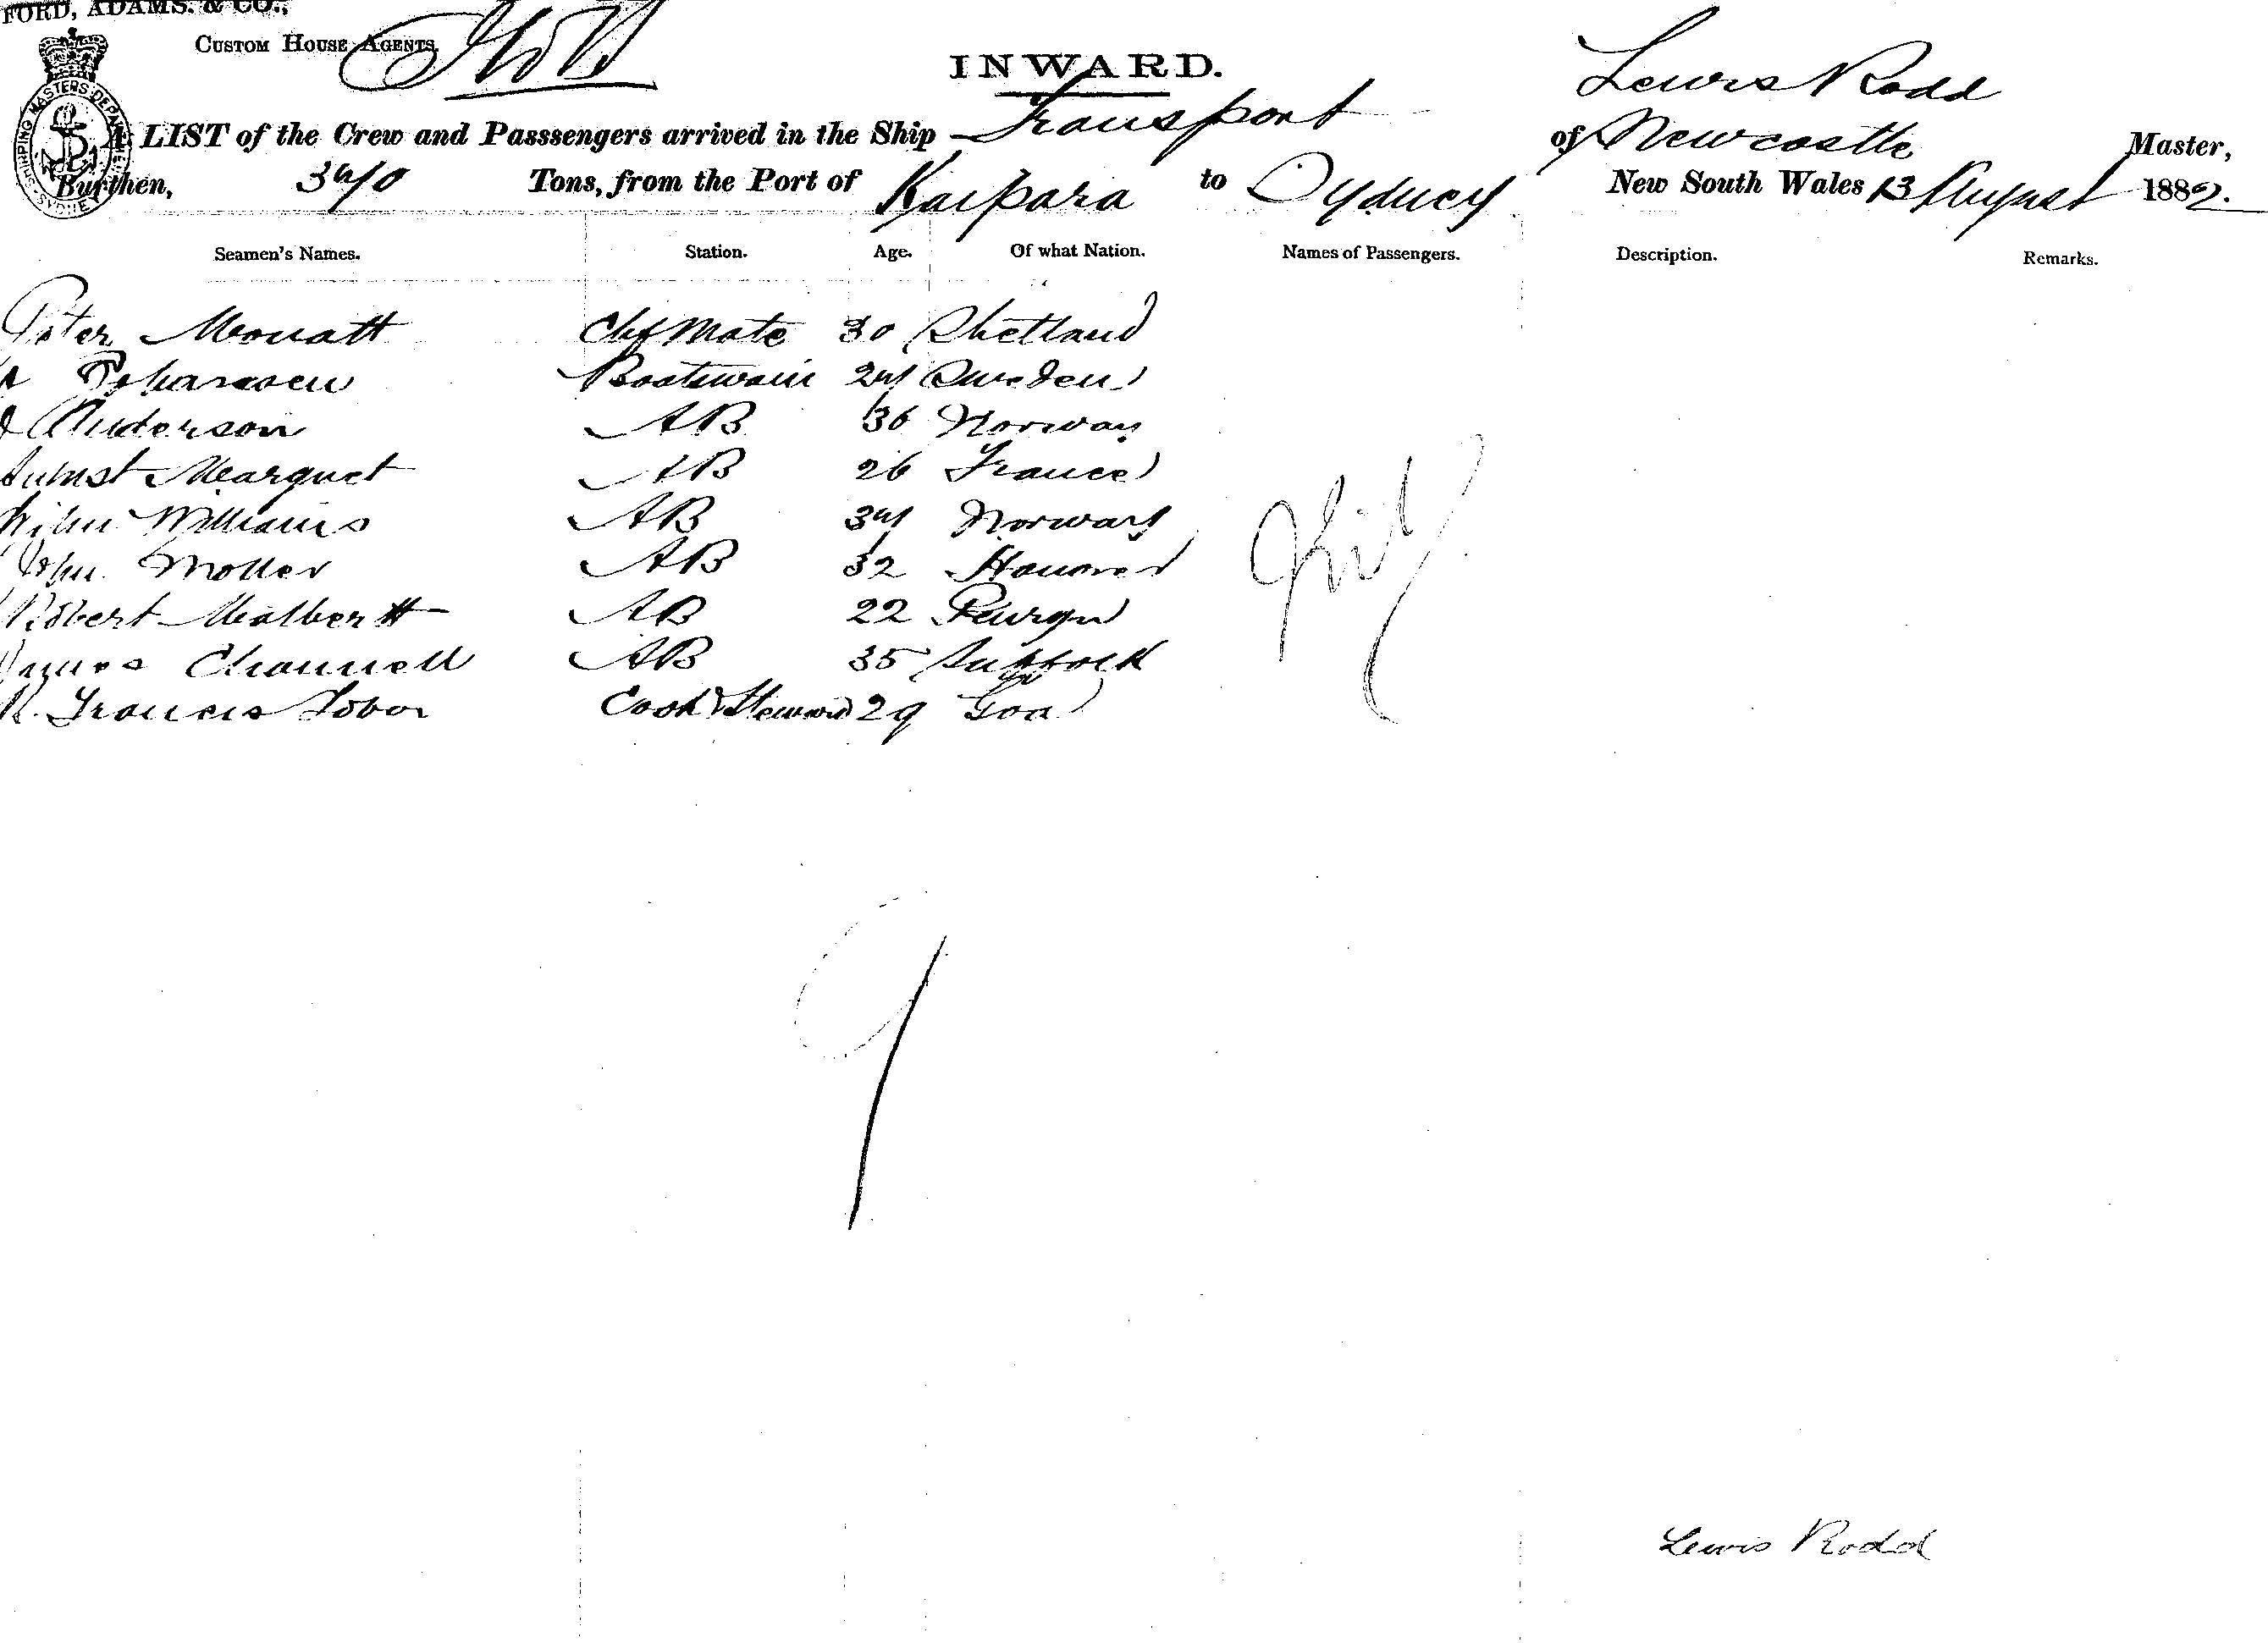 FORD, ADAMS. & CO.,
CUSTOM HOUSE AGENTS.
INWARD.
SHIPPING MASTERS DEPARTMENT SYDNEY
Lewis Rodd
A LIST of the Crew and Passsengers arrived in the Ship Transport of Newcastle Master,
Burthen, 340 Tons, from the Port of Kaipara to Sydney New South Wales 13 August 1882.
Seamen's Names. Station. Age. Of what Nation. Names of Passengers. Description. Remarks.
Peter Mouatt Chf Mate 30 Shetland
Johansen Boatswain 24 Sweden
Anderson AB 36 Norway
Marquet AB 26 France
Williams AB 34 Norway
John Moller AB 32 Hanover
Robert Malbertt AB 22
James Channell AB 35 Suffolk
R. Francis Cook & Steward 29 Goa
Nil
9
Lewis Rodd